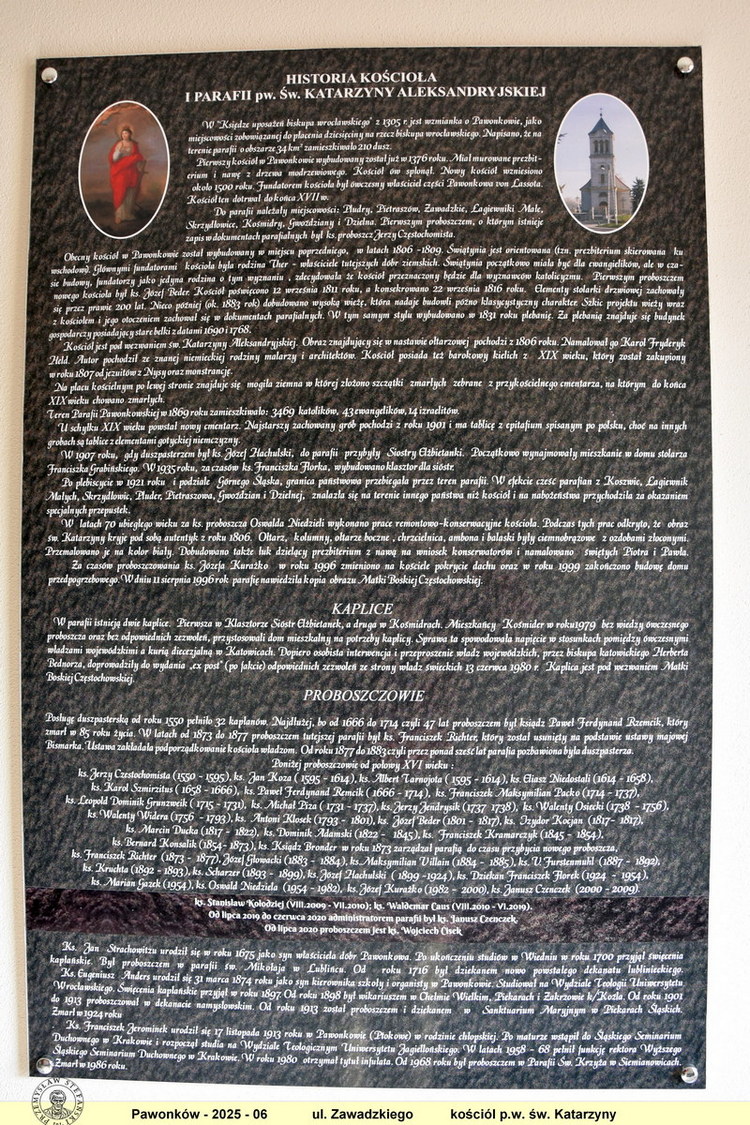 HISTORIA KOŚCIOŁA
I PARAFII pw. Św. KATARZYNY ALEKSANDRYJSKIEJ
W "Księdze uposażeń biskupa wrocławskiego" z 1305 r. jest wzmianka o Pawonkowie, jako
miejscowości zobowiązanej do płacenia dziesięciny na rzecz biskupa wrocławskiego. Napisano, że na
terenie parafii o obszarze 34 km² zamieszkiwało 210 dusz.
Pierwszy kościół w Pawonkowie wybudowany został już w 1376 roku. Miał murowane prezbit-
erium i nawę z drzewa modrzewiowego. Kościół ów spłonął. Nowy kościół wzniesiono
około 1500 roku. Fundatorem kościoła był ówczesny właściciel części Pawonkowa von Lassota.
Kościół ten dotrwał do końca XVII w.
Do parafii należały miejscowości: Pludry, Pietraszów, Zawadzkie, Łagiewniki Małe,
Skrzydłowice, Kośmidry, Gwoździany i Dzielna. Pierwszym proboszczem, o którym istnieje
zapis w dokumentach parafialnych był ks. proboszcz Jerzy Częstochomista.
Obecny kościół w Pawonkowie został wybudowany w miejscu poprzedniego, w latach 1806 -1809. Świątynia jest orientowana (tzn. prezbiterium skierowana ku
wschodowi). Głównymi fundatorami kościoła była rodzina Ther - właściciele tutejszych dóbr ziemskich. Świątynia początkowo miała być dla ewangelików, ale w cza-
sie budowy, fundatorzy jako jedyna rodzina o tym wyznaniu , zdecydowała że kościół przeznaczony będzie dla wyznawców katolicyzmu. Pierwszym proboszczem
nowego kościoła był ks. Józef Beder. Kościół poświęcono 12 września 1811 roku, a konsekrowano 22 września 1816 roku. Elementy stolarki drzwiowej zachowały
się przez prawie 200 lat. Nieco później (ok. 1883 rok) dobudowano wysoką wieżę, która nadaje budowli późno klasycystyczny charakter. Szkic projektu wieży wraz
z kościołem i jego otoczeniem zachował się w dokumentach parafialnych. W tym samym stylu wybudowano w 1831 roku plebanię. Za plebanią znajduje się budynek
gospodarczy posiadający stare belki z datami 1690 i 1768.
Kościół jest pod wezwaniem św. Katarzyny Aleksandryjskiej. Obraz znajdujący się w nastawie ołtarzowej pochodzi z 1806 roku. Namalował go Karol Fryderyk
Held. Autor pochodził ze znanej niemieckiej rodziny malarzy i architektów. Kościół posiada też barokowy kielich z XIX wieku, który został zakupiony
w roku 1807 od jezuitów z Nysy oraz monstrancję.
Na placu kościelnym po lewej stronie znajduje się mogiła ziemna w której złożono szczątki zmarłych zebrane z przykościelnego cmentarza, na którym do końca
XIX wieku chowano zmarłych.
Teren Parafii Pawonkowskiej w 1869 roku zamieszkiwało: 3469 katolików, 43 ewangelików, 14 izraelitów.
U schyłku XIX wieku powstał nowy cmentarz. Najstarszy zachowany grób pochodzi z roku 1901 i ma tablicę z epitafium spisanym po polsku, choć na innych
grobach są tablice z elementami gotyckiej niemczyzny.
W 1907 roku, gdy duszpasterzem był ks. Józef Hachulski, do parafii przybyły Siostry Elżbietanki. Początkowo wynajmowały mieszkanie w domu stolarza
Franciszka Grabińskiego. W 1935 roku, za czasów ks. Franciszka Florka, wybudowano klasztor dla sióstr.
Po plebiscycie w 1921 roku i podziale Górnego Śląska, granica państwowa przebiegała przez teren parafii. W efekcie część parafian z Koszwic, Łagiewnik
Małych, Skrzydłowic, Pluder, Pietraszowa, Gwoździan i Dzielnej, znalazła się na terenie innego państwa niż kościół i na nabożeństwa przychodziła za okazaniem
specjalnych przepustek.
W latach 70 ubiegłego wieku za ks. proboszcza Oswalda Niedzieli wykonano prace remontowo-konserwacyjne kościoła. Podczas tych prac odkryto, że obraz
św. Katarzyny kryje pod sobą autentyk z roku 1806. Ołtarz, kolumny, ołtarze boczne , chrzcielnica, ambona i balaski były ciemnobrązowe z ozdobami złoconymi.
Przemalowano je na kolor biały. Dobudowano także łuk dzielący prezbiterium z nawą na wniosek konserwatorów i namalowano świętych Piotra i Pawła.
Za czasów proboszczowania ks. Józefa Kurażko w roku 1996 zmieniono na kościele pokrycie dachu oraz w roku 1999 zakończono budowę domu
przedpogrzebowego. W dniu 11 sierpnia 1996 rok parafię nawiedziła kopia obrazu Matki Boskiej Częstochowskiej.
KAPLICE
W parafii istnieją dwie kaplice. Pierwsza w Klasztorze Sióstr Elżbietanek, a druga w Kośmidrach. Mieszkańcy Kośmider w roku 1979 bez wiedzy ówczesnego
proboszcza oraz bez odpowiednich zezwoleń, przystosowali dom mieszkalny na potrzeby kaplicy. Sprawa ta spowodowała napięcie w stosunkach pomiędzy ówczesnymi
władzami wojewódzkimi a kurią diecezjalną w Katowicach. Dopiero osobista interwencja i przeproszenie władz wojewódzkich, przez biskupa katowickiego Herberta
Bednorza, doprowadziły do wydania „ex post" (po fakcie) odpowiednich zezwoleń ze strony władz świeckich 13 czerwca 1980 r. Kaplica jest pod wezwaniem Matki
Boskiej Częstochowskiej.
PROBOSZCZOWIE
Posługę duszpasterską od roku 1550 pełniło 32 kapłanów. Najdłużej, bo od 1666 do 1714 czyli 47 lat proboszczem był ksiądz Paweł Ferdynand Rzemcik, który
zmarł w 85 roku życia. W latach od 1873 do 1877 proboszczem tutejszej parafii był ks. Franciszek Richter, który został usunięty na podstawie ustawy majowej
Bismarka. Ustawa zakładała podporządkowanie kościoła władzom. Od roku 1877 do 1883 czyli przez ponad sześć lat parafia pozbawiona była duszpasterza.
Poniżej proboszczowie od połowy XVI wieku :
ks. Jerzy Czestochomista (1550 - 1595), ks. Jan Koza ( 1595 - 1614), ks. Albert Tarnojota ( 1595 - 1614), ks. Eliasz Niedostali (1614 - 1658),
ks. Karol Szmirzitus ( 1658 - 1666), ks. Paweł Ferdynand Remcik (1666 - 1714), ks. Franciszek Maksymilian Packo (1714 - 1737),
ks. Leopold Dominik Grunzweik ( 1715 - 1731), ks. Michał Piza (1731 - 1737), ks. Jerzy Jendrysik (1737 1738), ks. Walenty Osiecki (1738 - 1756),
ks. Walenty Widera (1756 - 1793), ks. Antoni Klosek (1793 - 1801), ks. Józef Beder (1801 - 1817), ks. Izydor Kocjan (1817- 1817),
ks. Marcin Ducka (1817 - 1822), ks. Dominik Adamski (1822 - 1845), ks. Franciszek Kramarczyk (1845 - 1854),
ks. Bernard Konsalik (1854 - 1873), ks. Ksiądz Bronder w roku 1873 zarządzał parafią do czasu przybycia nowego proboszcza,
ks. Franciszek Richter (1873 - 1877), Józef Głowacki (1883 - 1884), ks. Maksymilian Villain (1884 - 1885), ks. U. Furstenmuhl (1887 - 1892),
ks. Kruchta (1892 - 1893), ks. Scharzer (1893 - 1899), ks. Józef Hachulski ( 1899 -1924), ks. Dziekan Franciszek Florek (1924 - 1954),
ks. Marian Gazek (1954), ks. Oswald Niedziela (1954 - 1982), ks. Józef Kurażko (1982 - 2000), ks. Janusz Czenczek (2000 - 2009).
ks. Stanisław Kołodziej (VIII.2009 - VII.2010); ks. Waldemar Caus (VIII.2010 - VI.2019).
Od lipca 2019 do czerwca 2020 administratorem parafii był ks. Janusz Czenczek,
Od lipca 2020 proboszczem jest ks. Wojciech Cisek
Ks. Jan Strachowitzu urodził się w roku 1675 jako syn właściciela dóbr Pawonkowa. Po ukończeniu studiów w Wiedniu w roku 1700 przyjął święcenia
kapłańskie. Był proboszczem w parafii św. Mikołaja w Lublińcu. Od roku 1716 był dziekanem nowo powstałego dekanatu lublinieckiego.
Ks. Eugeniusz Anders urodził się 31 marca 1874 roku jako syn kierownika szkoły i organisty w Pawonkowie. Studiował na Wydziale Teologii Uniwersytetu
Wrocławskiego. Święcenia kapłańskie przyjął w roku 1897 Od roku 1898 był wikariuszem w Chełmie Wielkim, Piekarach i Zakrzowie k/Koźla. Od roku 1901
do 1913 proboszczował w dekanacie namysłowskim. Od roku 1913 został proboszczem i dziekanem w Sanktuarium Maryjnym w Piekarach Śląskich.
Zmarł w 1924 roku
Ks. Franciszek Jerominek urodził się 17 listopada 1913 roku w Pawonkowie (Ptokowe) w rodzinie chłopskiej. Po maturze wstąpił do Śląskiego Seminarium
Duchownego w Krakowie i rozpoczął studia na Wydziale Teologicznym Uniwersytetu Jagiellońskiego. W latach 1958 - 68 pełnił funkcję rektora Wyższego
Śląskiego Seminarium Duchownego w Krakowie. W roku 1980 otrzymał tytuł infułata. Od 1968 roku był proboszczem w Parafii Św. Krzyża w Siemianowicach.
Zmarł w 1986 roku.
PRZEMYSŁAW STEFAŃSKI
Pawonków - 2025 - 06 ul. Zawadzkiego kościół p.w. św. Katarzyny